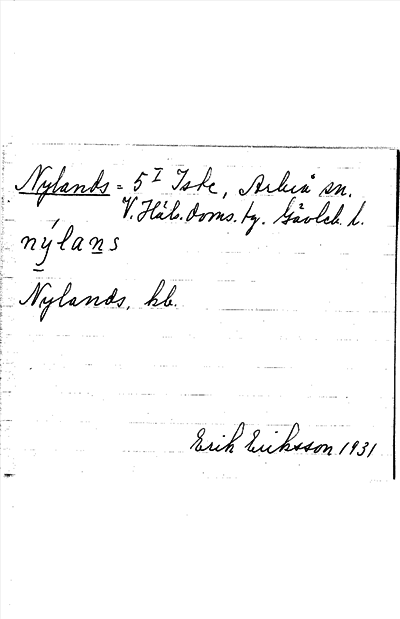 Nylands = 5 I Iste, Arbrå sn.
V. Häls. doms. tg. Gävleb. l.
nýlans
Nylands, kb.
Erik Eriksson 1931